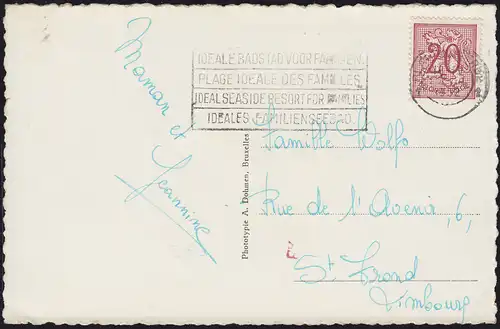 Maman et
Jeannine
IDEALE BADSTAD VOOR FAMILIEN
PLAGE IDEALE DES FAMILLES
IDEAL SEASIDE RESORT FOR FAMILIES
IDEALES FAMILIENSEEBAD
20
Phototypie A. Dohmen, Bruxelles
Famille Wolfs
Rue de l'Avenir, 6,
St Trond
Limbourg